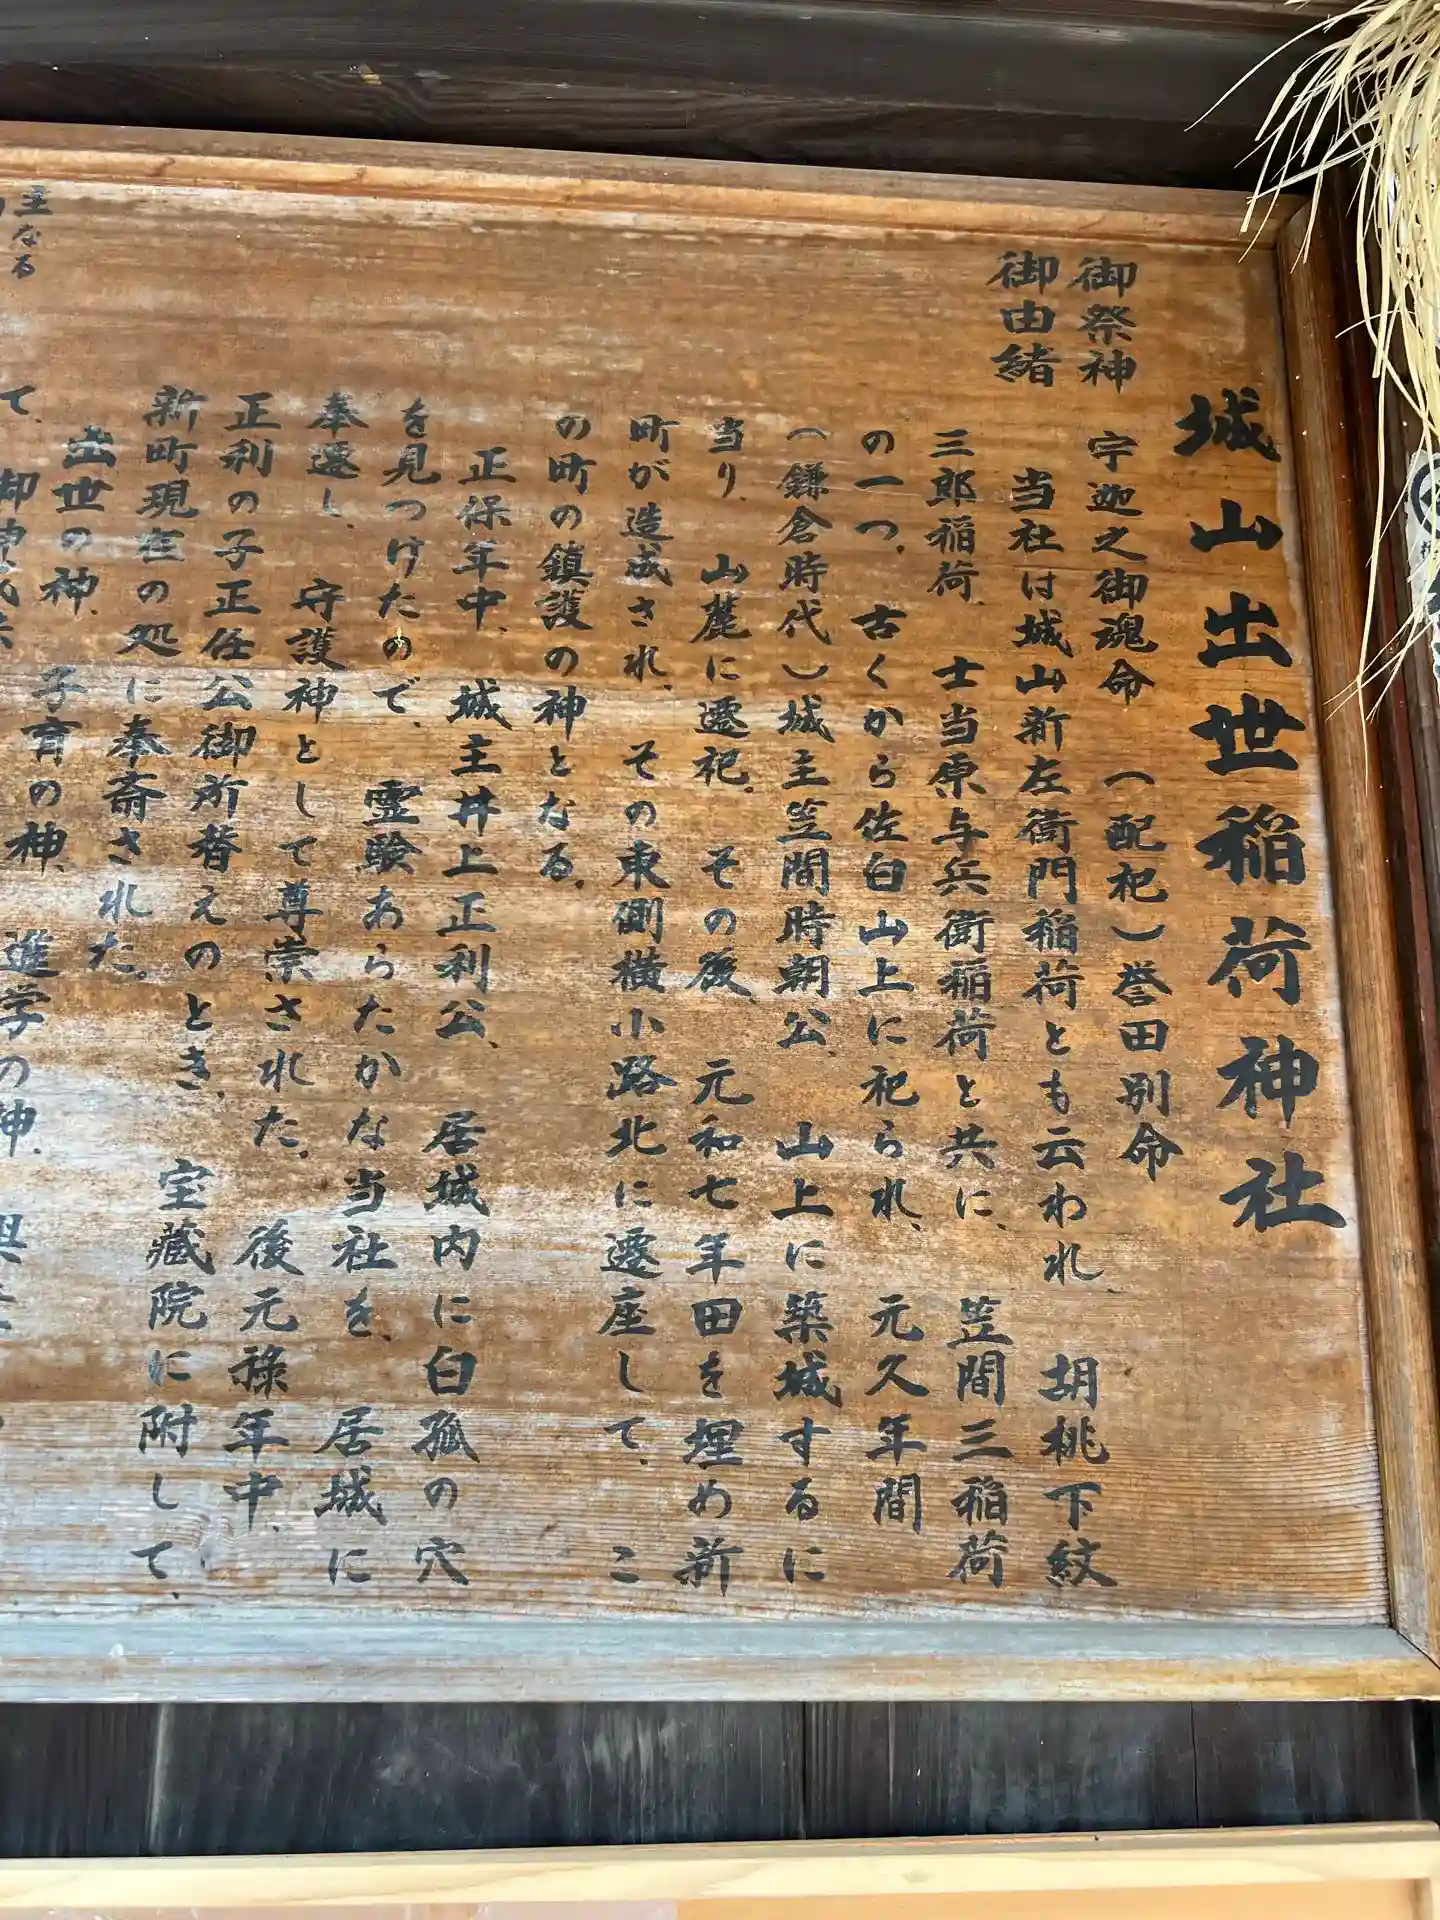 城山出世稲荷神社
御祭神　宇迦之御魂命　（配祀）誉田別命
御由緒　当社は城山新左衛門稲荷とも云われ、胡桃下紋
三郎稲荷、士当原与兵衛稲荷と共に、笠間三稲荷
の一つ、古くから佐白山上に祀られ、元久年間
（鎌倉時代）城主笠間時朝公、山上に築城するに
当り、山麓に遷祀。その後、元和七年田を埋め新
町が造成され、その東側横小路北に遷座して、こ
の町の鎮護の神となる。
正保年中、城主井上正利公、居城内に白狐の穴
を見つけたので、霊験あらたかな当社を、居城に
奉遷し、守護神として尊崇された。後元禄年中、
正利の子正任公御所替えのとき、宝蔵院に附して、
新町現在の処に奉斎された。
出世の神、子育の神、進学の神、
て、御神
主なる